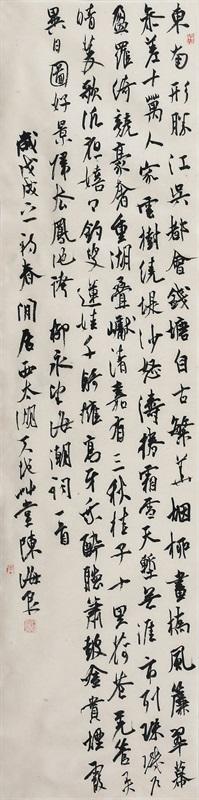 東南形胜江吳都會錢塘自古繁華烟柳畫橋風簾翠幕
參差十萬人家雲樹繞堤沙怒濤捲霜雪天塹無涯市列珠璣户
盈羅綺競豪奢重湖疊巘清嘉有三秋桂子十里荷花羌管弄
晴菱歌泛夜嬉嬉釣叟蓮娃千騎擁高牙乘醉聽簫鼓吟賞煙霞
異日圖好景歸去鳳池誇 柳永望海潮詞一首
歲戊戌之初春閒居西太湖堂陳海良